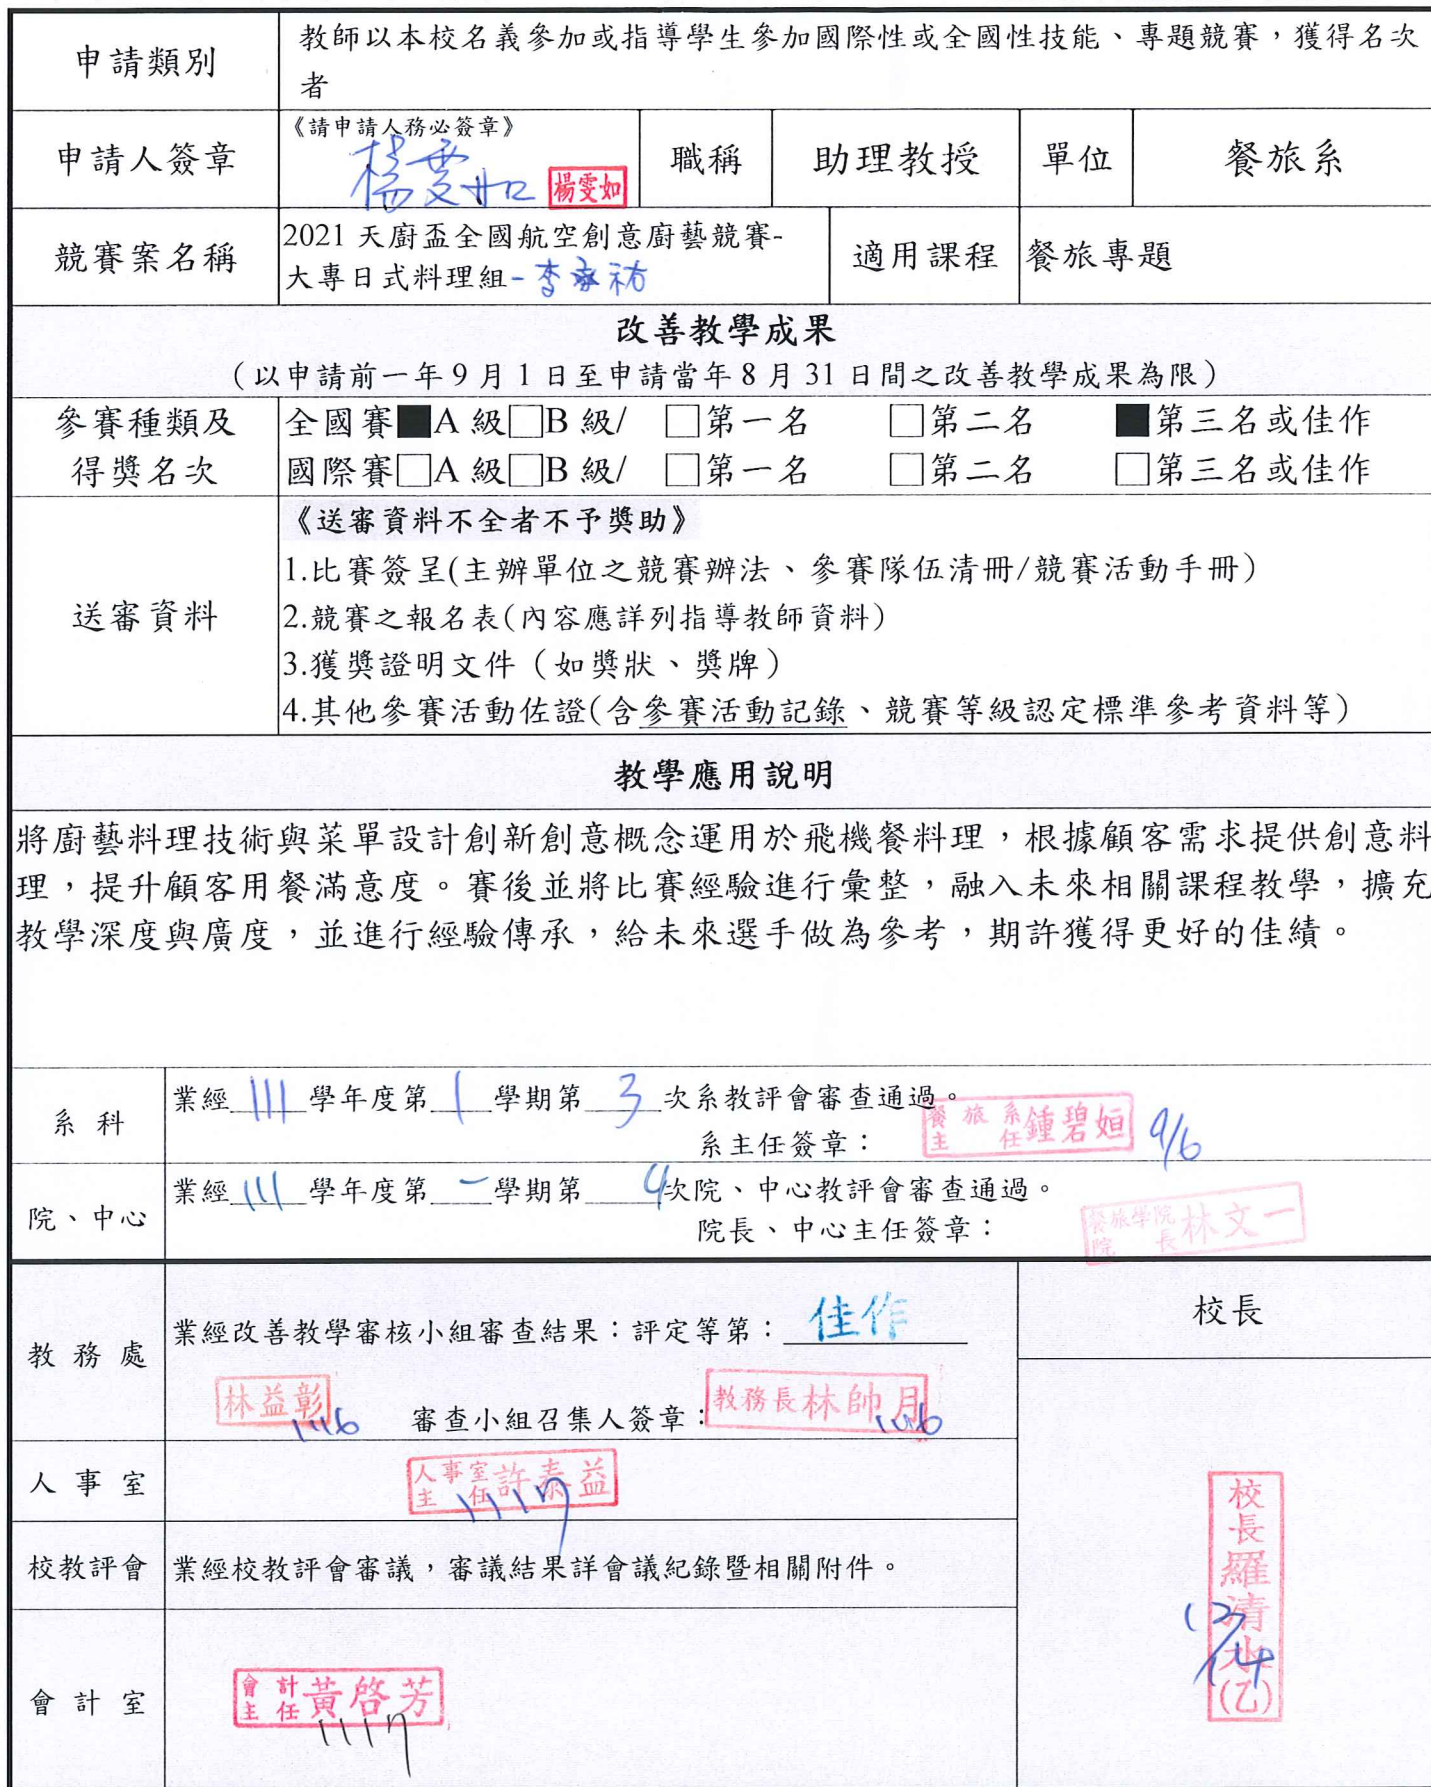 申請類別
教師以本校名義參加或指導學生參加國際性或全國性技能、專題競賽，獲得名次
者
申請人簽章
《請申請人務必簽章》
楊雯如 楊雯如
職稱
助理教授
單位
餐旅系
競賽案名稱
2021 天廚盃全國航空創意廚藝競賽-
大專日式料理組-李家祐
適用課程
餐旅專題
改善教學成果
（以申請前一年 9 月 1 日至申請當年 8 月 31 日間之改善教學成果為限）
參賽種類及
得獎名次
全國賽■A 級□B 級/ □第一名 □第二名 ■第三名或佳作
國際賽□A 級□B 級/ □第一名 □第二名 □第三名或佳作
送審資料
《送審資料不全者不予獎助》
1.比賽簽呈(主辦單位之競賽辦法、參賽隊伍清冊/競賽活動手冊)
2.競賽之報名表(內容應詳列指導教師資料)
3.獲獎證明文件（如獎狀、獎牌）
4.其他參賽活動佐證(含參賽活動記錄、競賽等級認定標準參考資料等)
教學應用說明
將廚藝料理技術與菜單設計創新創意概念運用於飛機餐料理，根據顧客需求提供創意料
理，提升顧客用餐滿意度。賽後並將比賽經驗進行彙整，融入未來相關課程教學，擴充
教學深度與廣度，並進行經驗傳承，給未來選手做為參考，期許獲得更好的佳績。
系科
業經 111 學年度第 1 學期第 3 次系教評會審查通過。
系主任簽章： 餐旅系主任 鍾碧姮 9/6
院、中心
業經 111 學年度第 一 學期第 4 次院、中心教評會審查通過。
院長、中心主任簽章： 餐旅學院院長 林文一
教務處
業經改善教學審核小組審查結果：評定等第：佳作
林益彰 1116 審查小組召集人簽章：教務長林帥月 1116
校長
人事室
人事室主任 許泰益 1117
校教評會
業經校教評會審議，審議結果詳會議紀錄暨相關附件。
會計室
會計主任 黃啓芳 1117
校長羅清水(乙) 12/14